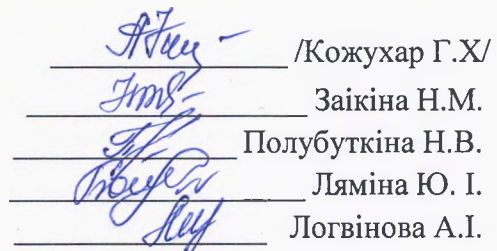 /Кожухар Г.Х/
Заікіна Н.М.
Полубуткіна Н.В.
Ляміна Ю. І.
Логвінова А.І.